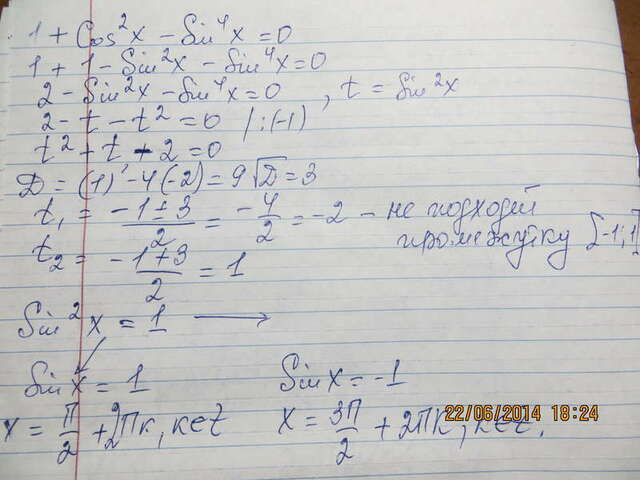 1 + Cos²x - Sin⁴x = 0
1 + 1 - Sin²x - Sin⁴x = 0
2 - Sin²x - Sin⁴x = 0 , t = Sin²x
2 - t - t² = 0 /:(-1)
t² + t - 2 = 0
D = (1)² - 4(-2) = 9 √D = 3
t₁ = -1 ± 3 / 2 = -4/2 = -2 - не подходит
промежутку [-1; 1]
t₂ = -1 + 3 / 2 = 1
Sin²x = 1 →
Sin x = 1 Sin x = -1
x = π/2 + 2πk, k∈Z x = 3π/2 + 2πk, k∈Z.
22/06/2014 18:24